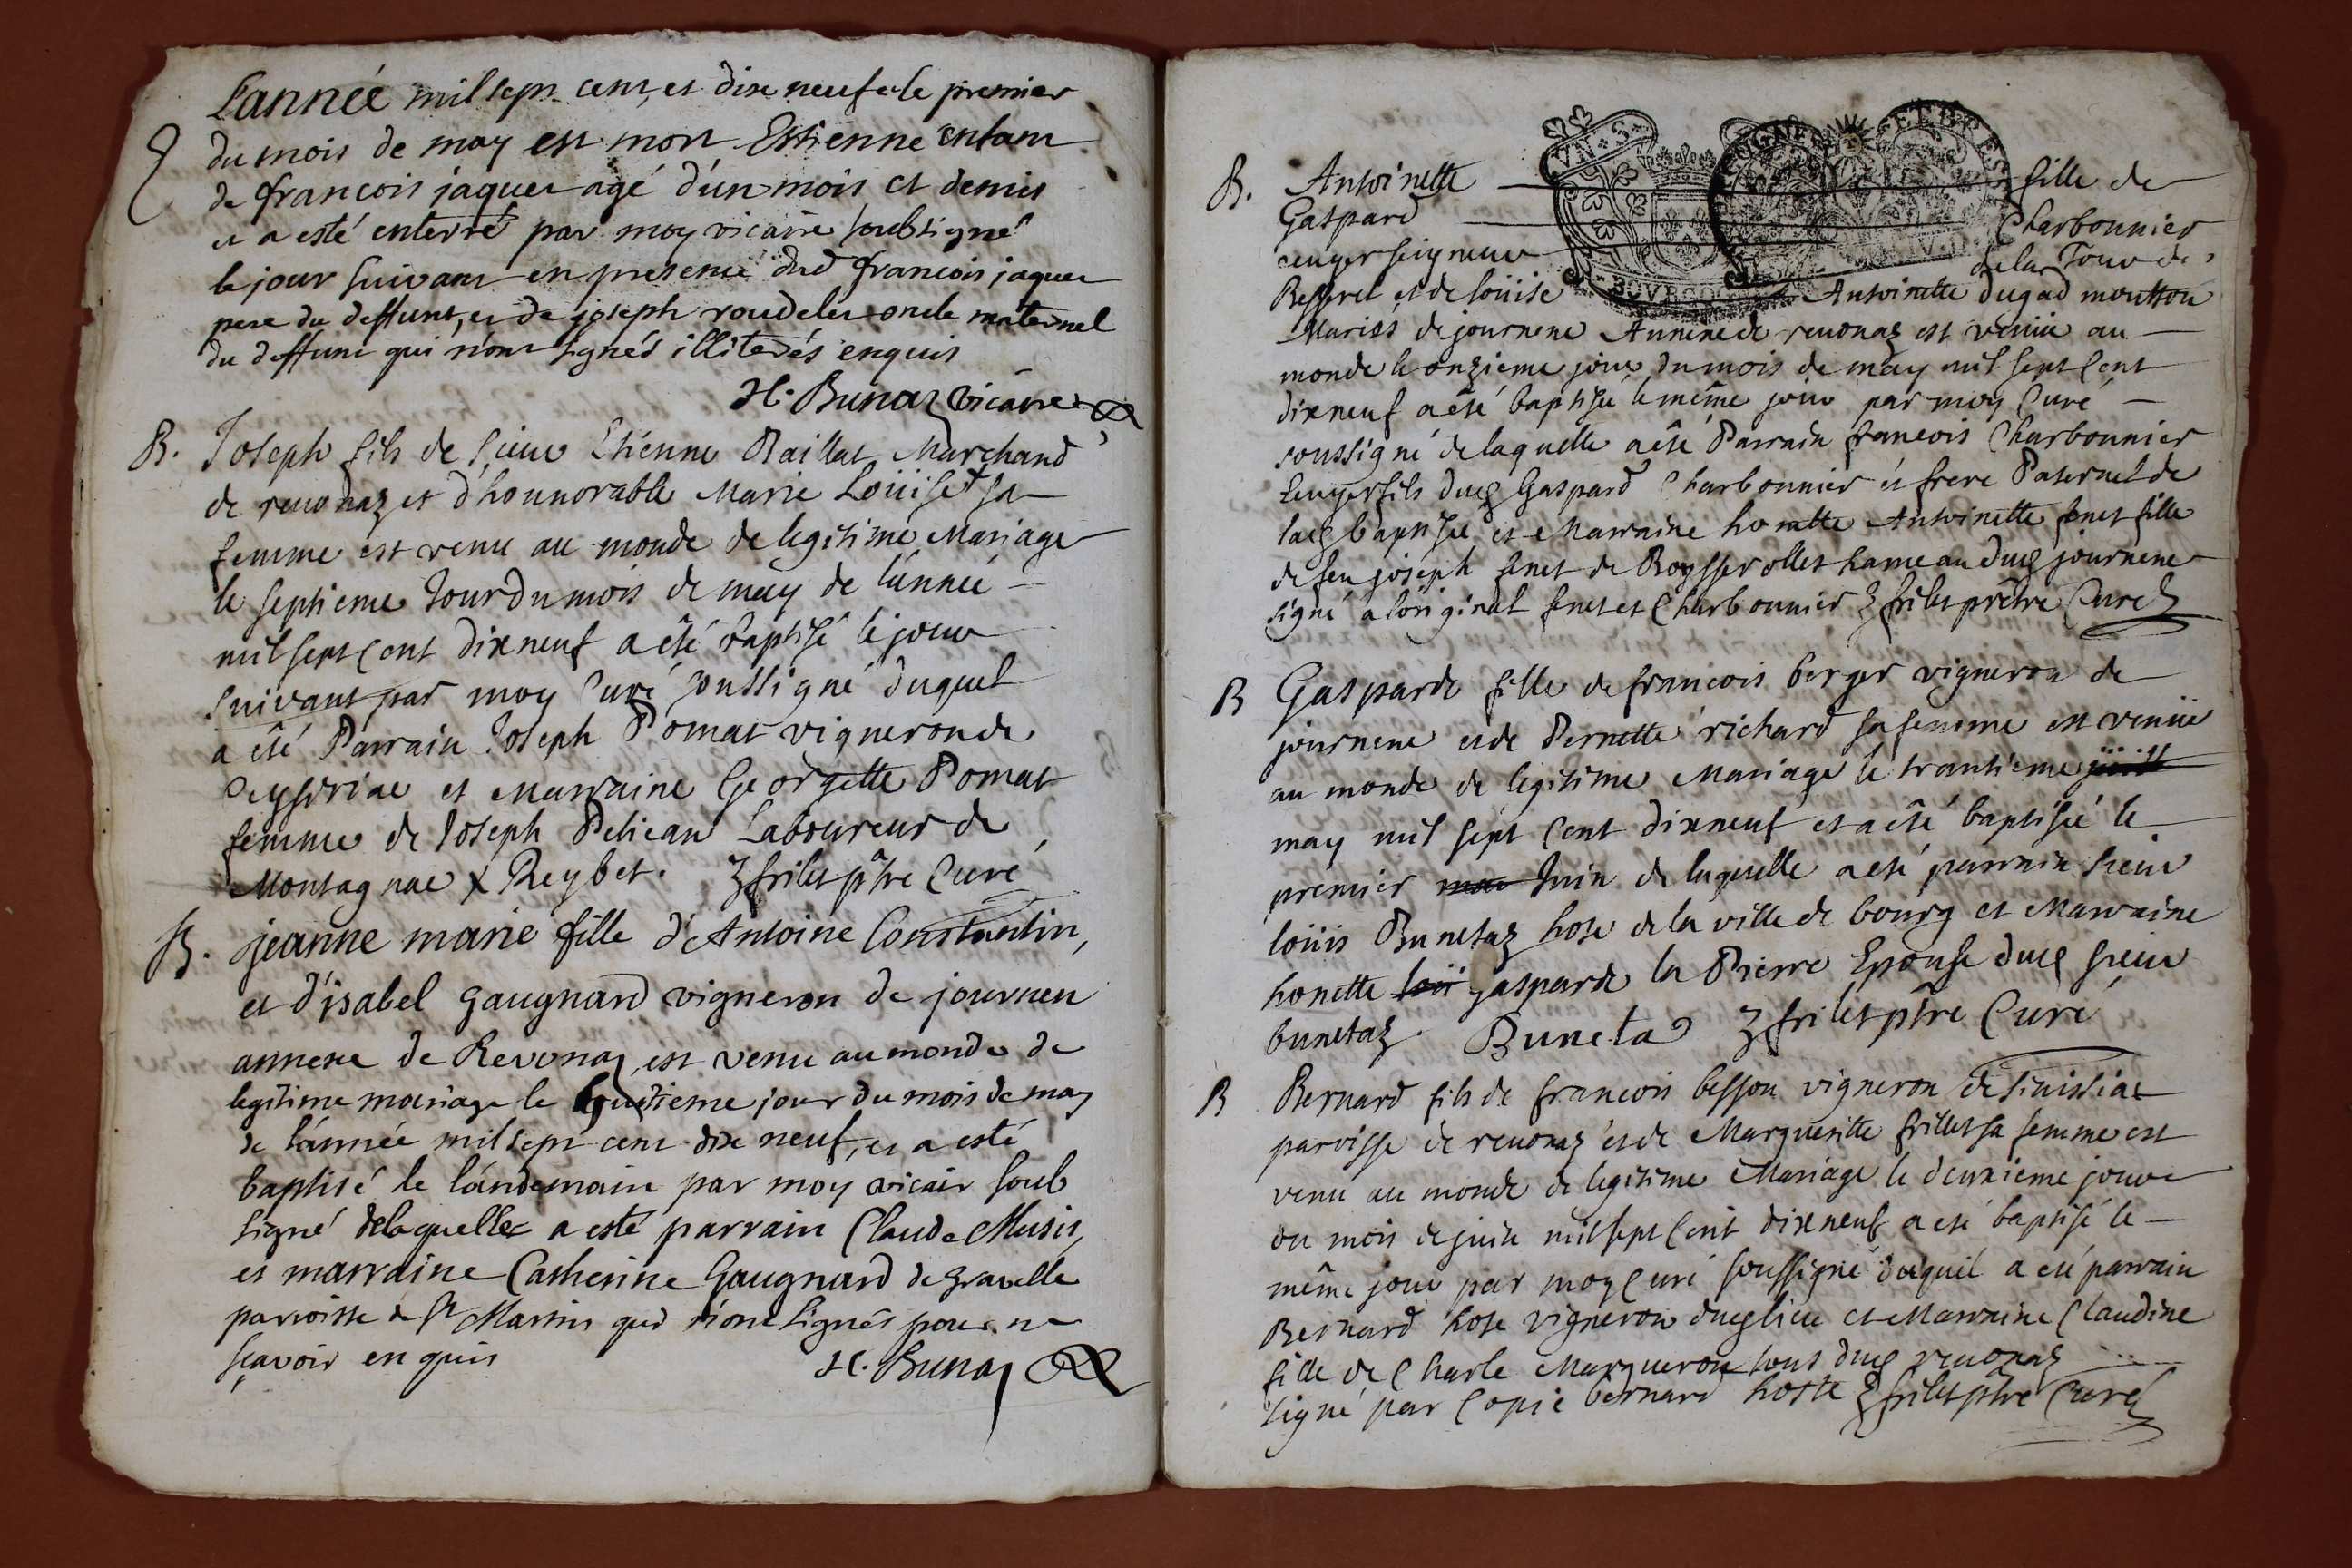 L'année mil sept cent, et dixe neuf et le premier
du mois de may est mort Estienne enfant
de francois jaquet agé d'un mois et demis
et a esté enterré par moy vicaire soubsigné
le jour suivant en presence dud francois jaquet
pere du deffunt, et de joseph roudelet oncle maternel
du deffunt qui n'ont signés illiterés enquis
H. Bunaz vicaire
B. Joseph fils de sieur Etienne Baillat Marchand
de revonaz et d'honnorable Marie Loüise sa
femme est venu au monde de legitime Mariage
le septieme Jour du mois de may de l'année
mil sept Cent dixneuf a êté baptisé le jour
suivant par moy Curé soussigné duquel
a êté Parrain Joseph Pomat vigneron de
Ceyseriac et Marraine Georgette Pomat
femme de Joseph Pelican Laboureur de
Montagnac x Reybet. frilet ptre Curé
B. jeanne marie fille d'Antoine Constantin,
et d'isabel Gaugnard vigneron de journen
annexe de Revonaz, est venu au monde de
legitime mariage le huitieme jour du mois de may
de l'année mil sept cent dixe neuf, et a esté
baptisé le landemain par moy vicair soub
signé de laquelle a esté parrain Claude Musis,
et marraine Catherine Gaugnard de gravelle
parroisse de St Martin qui n'ont signés pour ne
sçavoir enquis H. Bunaz
UN. S.
BOURGOGNE ET BRESSE
B. Antoinette fille de
Gaspard Charbonnier
ecuyer seigneur de la Tour de
Besserel et de loüise Antoinette dugad moutton
Mariés de journene Annexe de revonaz est venüe au
monde le onzieme jour du mois de may mil sept Cent
dixneuf a êté baptisée le même jour par moy Curé
soussigné de laquelle a êté Parrain francois Charbonnier
Ecuyer fils dud Gaspard Charbonnier et frere Paternel de
lad baptisée et Marraine honnette Antoinette fenet fille
de feu joseph fenet de Boysserolles hameau dud journene
signé a l'original fenet et Charbonnier frilet prêtre Curé
B Gasparde fille de francois berger vigneron de
journene et de Pernette richard sa femme est venüe
au monde de legitime Mariage le trantieme
may mil sept Cent dixneuf et a êté baptisée le
premier Juin de laquelle a eté parrain sieur
loüis Bunetaz hote de la ville de bourg et Marraine
honette gasparde la Pierre Epouse dud sieur
bunetaz. Buneta frilet ptre Curé
B Bernard fils de francois besson vigneron de Sinissiac
paroisse de revonaz et de Margueritte frillet sa femme est
venu au monde de legitime Mariage le deuxieme jour
du mois de juin mil sept Cent dixneuf a eté baptisé le
même jour par moy Curé soussigné duquel a eté parrain
Bernard hote vigneron dud lieu et Marraine Claudine
fille de Charle Margueron tous dud revonaz
signé par Copie bernard hoste frilet ptre Curé